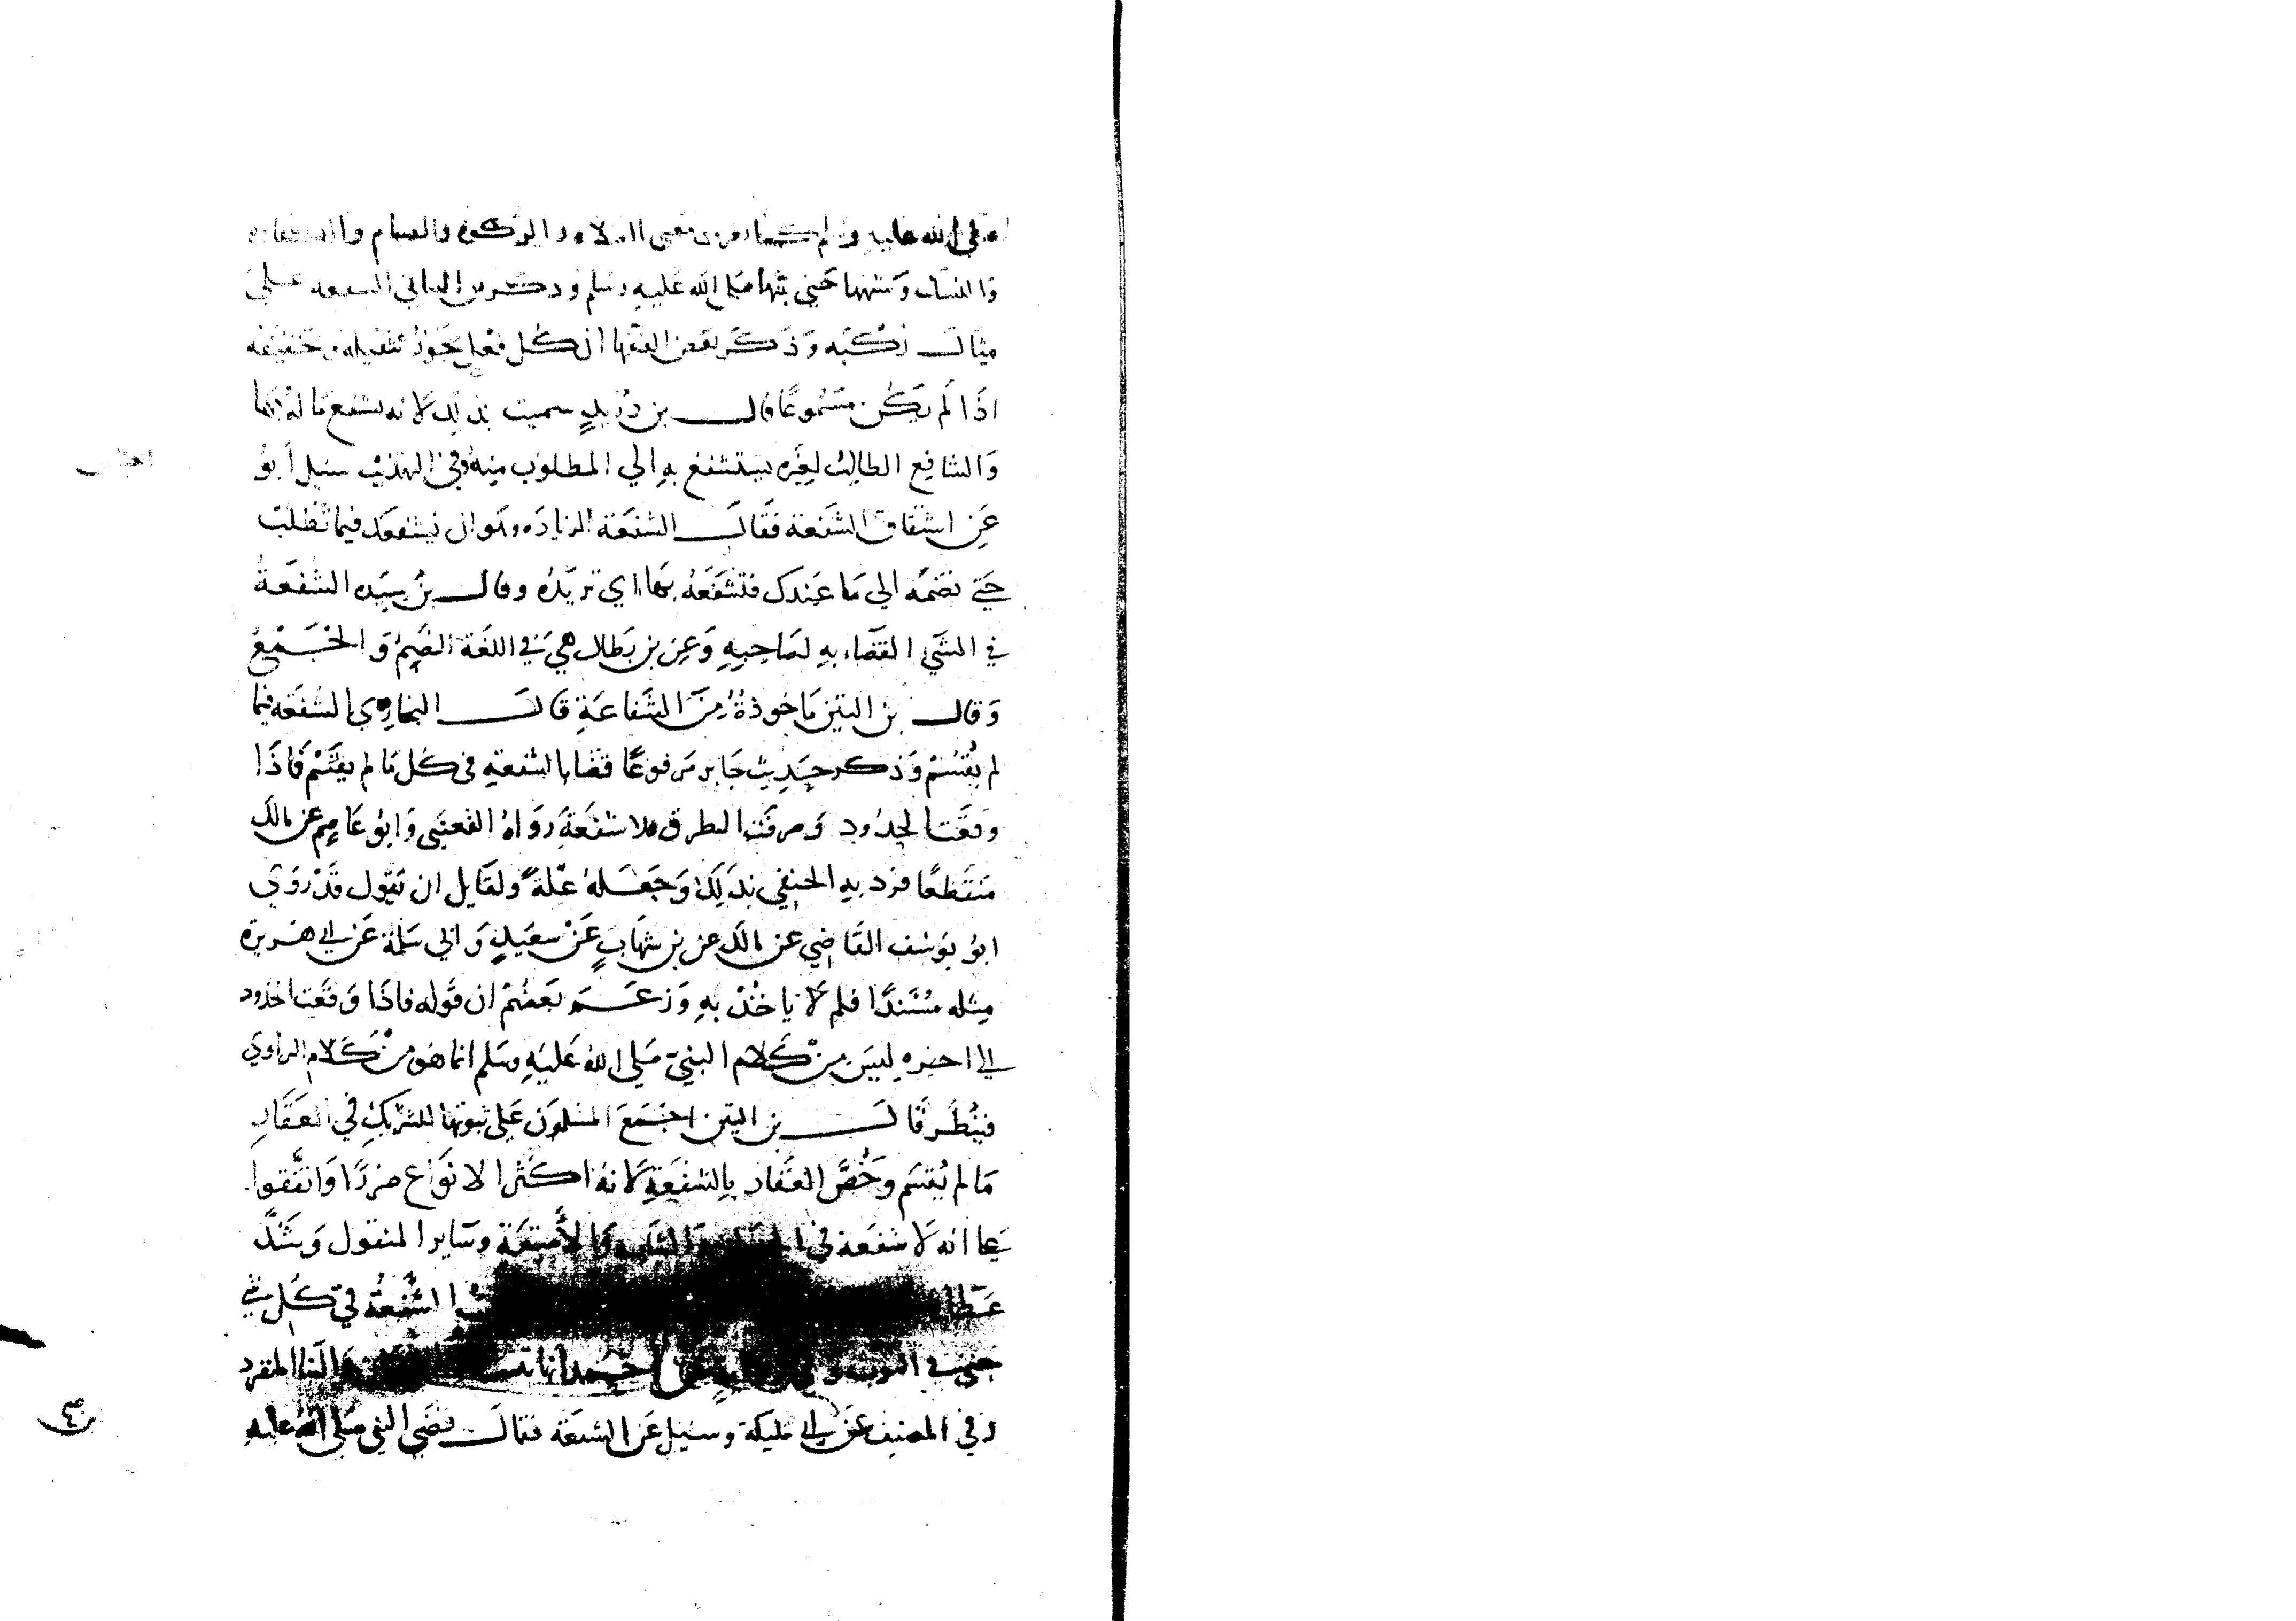 الله عليه والزكوة والصيام
حتي بينها صلى الله عليه وسلم وذكر بن
مثال ركبه وذكر بعض الفقها ان كل فعل يجوز تثقيله وتخفيفه
اذا لم يكن مسموعا قال بن دريد سميت بذلك لانه يشفع ماله بها
والشافع الطالب لغيره يستشفع به الي المطلوب منه وفي التهذيب سيل أبو
عن اشتقاق الشفعة فقال الشفعة الزيادة وهو ان يشفعك فيما تطلب
حتي تضمه الي ما عندك فتشفعه بها اي تزيده وقال بن سيده الشفعة
في الشي القضاء به لصاحبه وعن بن بطال هي في اللغة الضم والجمع
وقال بن التين ماخوذة من الشفاعة قال البخاري الشفعه فيما
لم يقسم وذكر حديث جابر مرفوعا قضا بالشفعة في كل ما لم يقسم فاذا
وقعت الحدود وصرفت الطرق فلا شفعة رواه القعنبي وابو عاصم عن مالك
منقطعا فرد به الحنفي بذلك وجعله علة ولقايل ان يقول قد روي
ابو يوسف القاضي عن مالك عن بن شهاب عن سعيد وابي سلمة عن ابي هريرة
مثله مسندا فلم لا ياخذ به وزعم بعضهم ان قوله فاذا وقعت الحدود
الي اخره ليس من كلام النبي صلي الله عليه وسلم انما هو من كلام الراوي
فينظر قال بن التين اجمع المسلمون علي ثبوتها للشريك في العقار
ما لم يقسم وخص العقار بالشفعة لانه اكثر الانواع ضررا واتفقوا
علي انه لا شفعة في والثياب والأمتعة وساير المنقول وشذ
الشفعة في كل شي
حتي في الثوب احمد انها المنفرد
وفي المصنف عن ابي مليكة وسيل عن الشفعة فقال قضي النبي صلي الله عليه